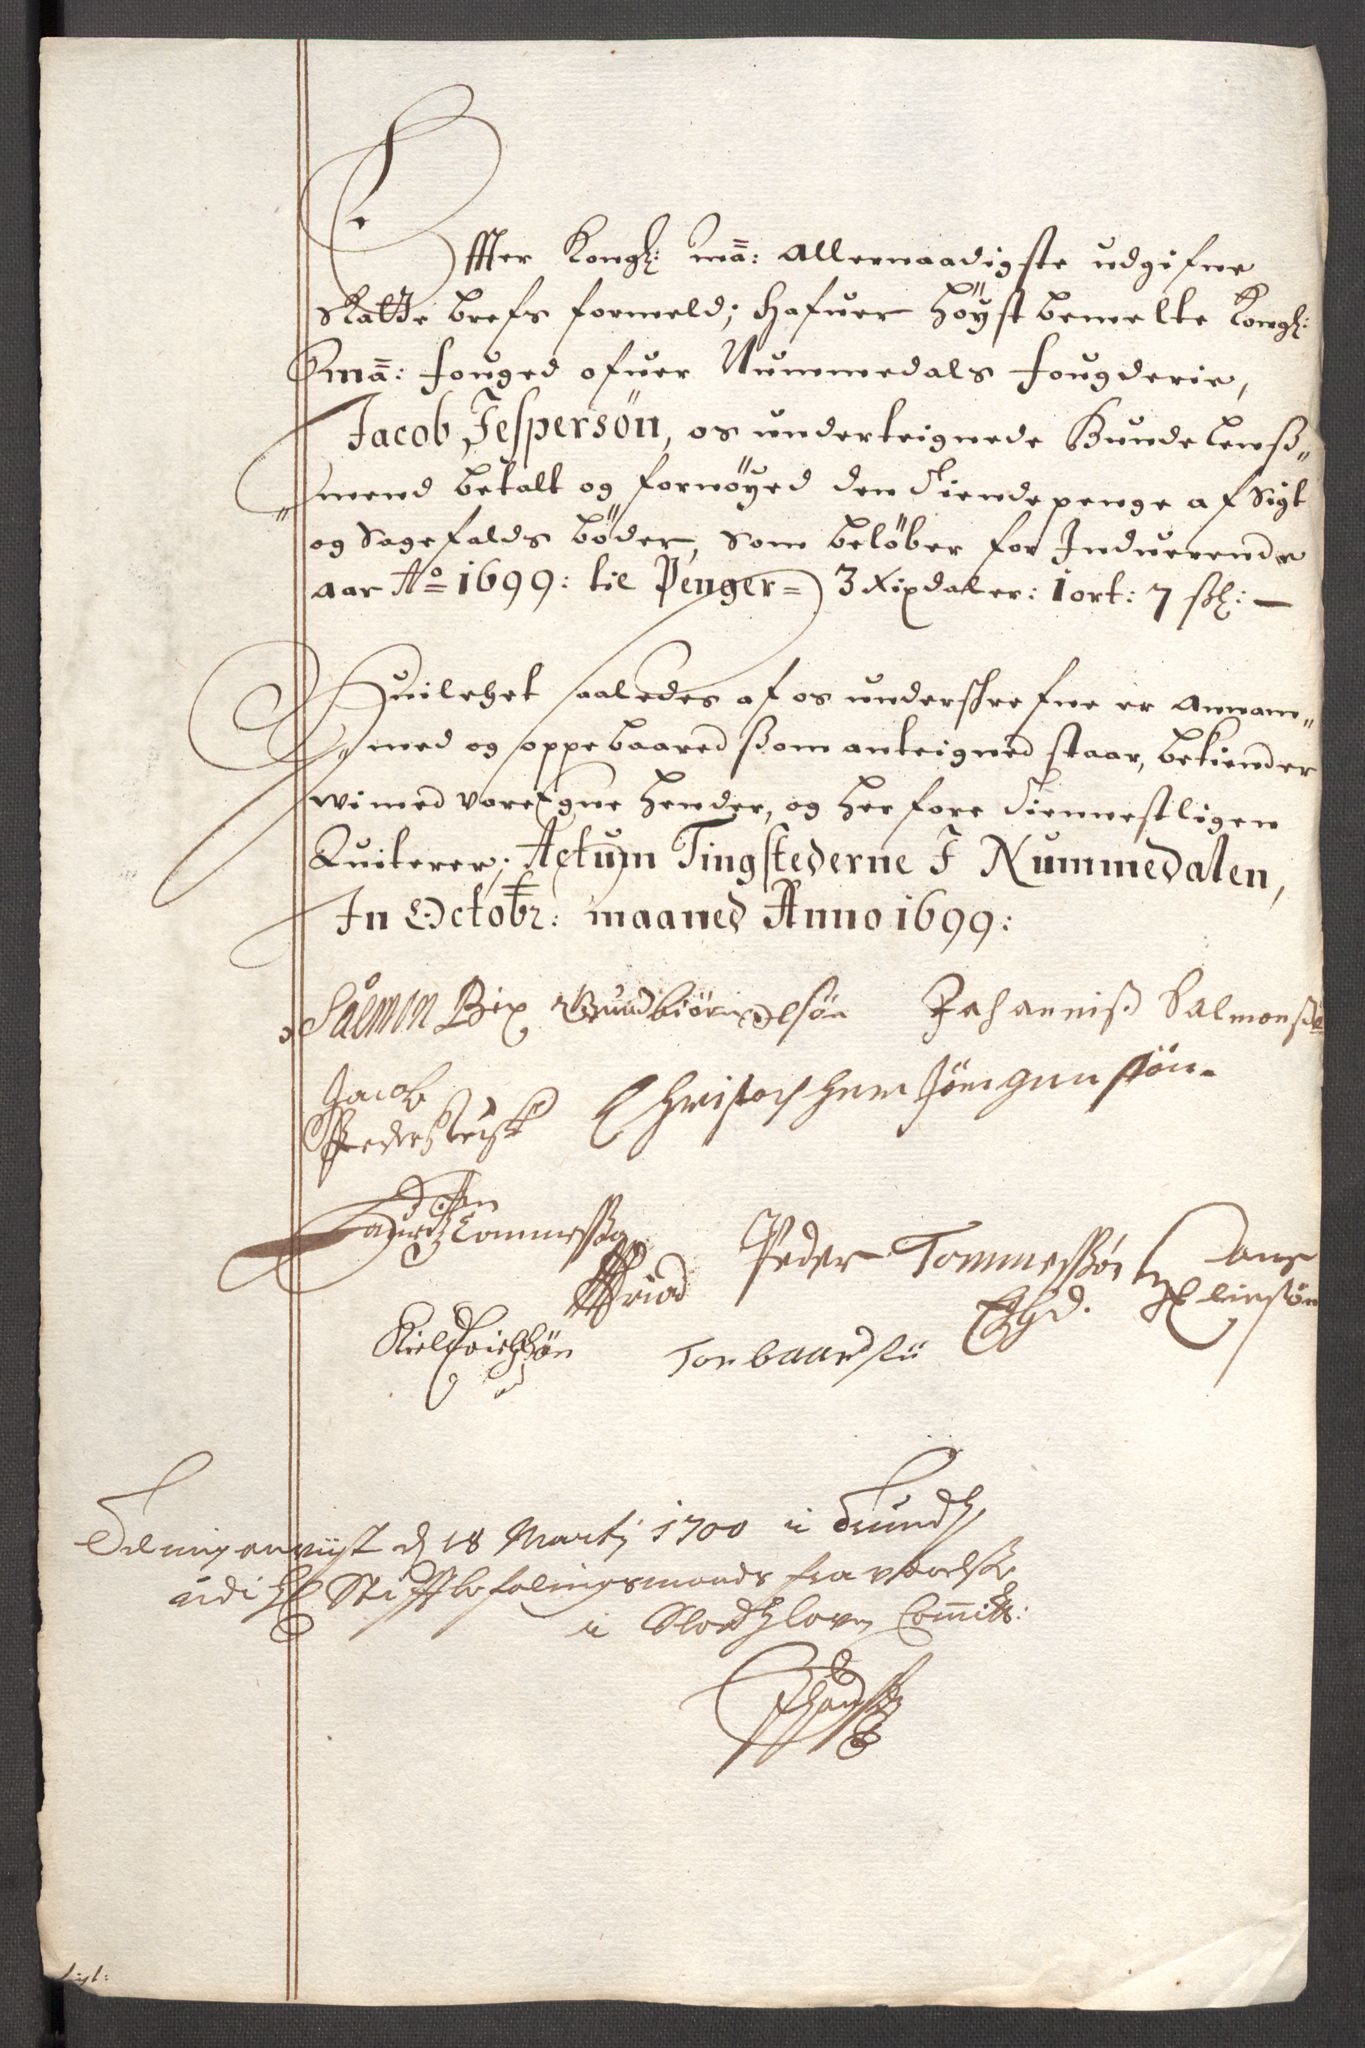 Effter Kongl: Ma: Allernaadigste udgifne
Skatte brefs formeld; hafuer höyst bemelte Kongl:
Ma: fouged ofuer Nummedals fougderie,
Jacob Jespersön, os underteignede Bundelenß„
„mend betalt og fornöyed den tiendepenge af Sigt
og Sagefalds böder, Som belöber for Induerende
aar Ao 1699: til Penger= 3 Rixdaler: 1 ort: 7 ßl: —
Huilchet saaledes af os underschrefne er Annam„
„med og oppebaared ßom anteigned staar, bekiender
wi med vore Egne hender, og her fore tiennestligen
Quiterer; Actum Tingstederne I Nummedalen,
In Octobr: maaned Anno 1699:
Salmon Gudbiørn Olsøn Johanniß Salmonsß
Jacob
Pederß Christopher Jörgensön
Lauritz Tommesßøn
Peder Tommesßøn Hans
Eliesøn
Kield
Torbaardsø
At mig anvijst d 18 Martij 1700 i Trundh
udi H Stifftbefalingsmands fraværelße
i Slodtzloven Committ: